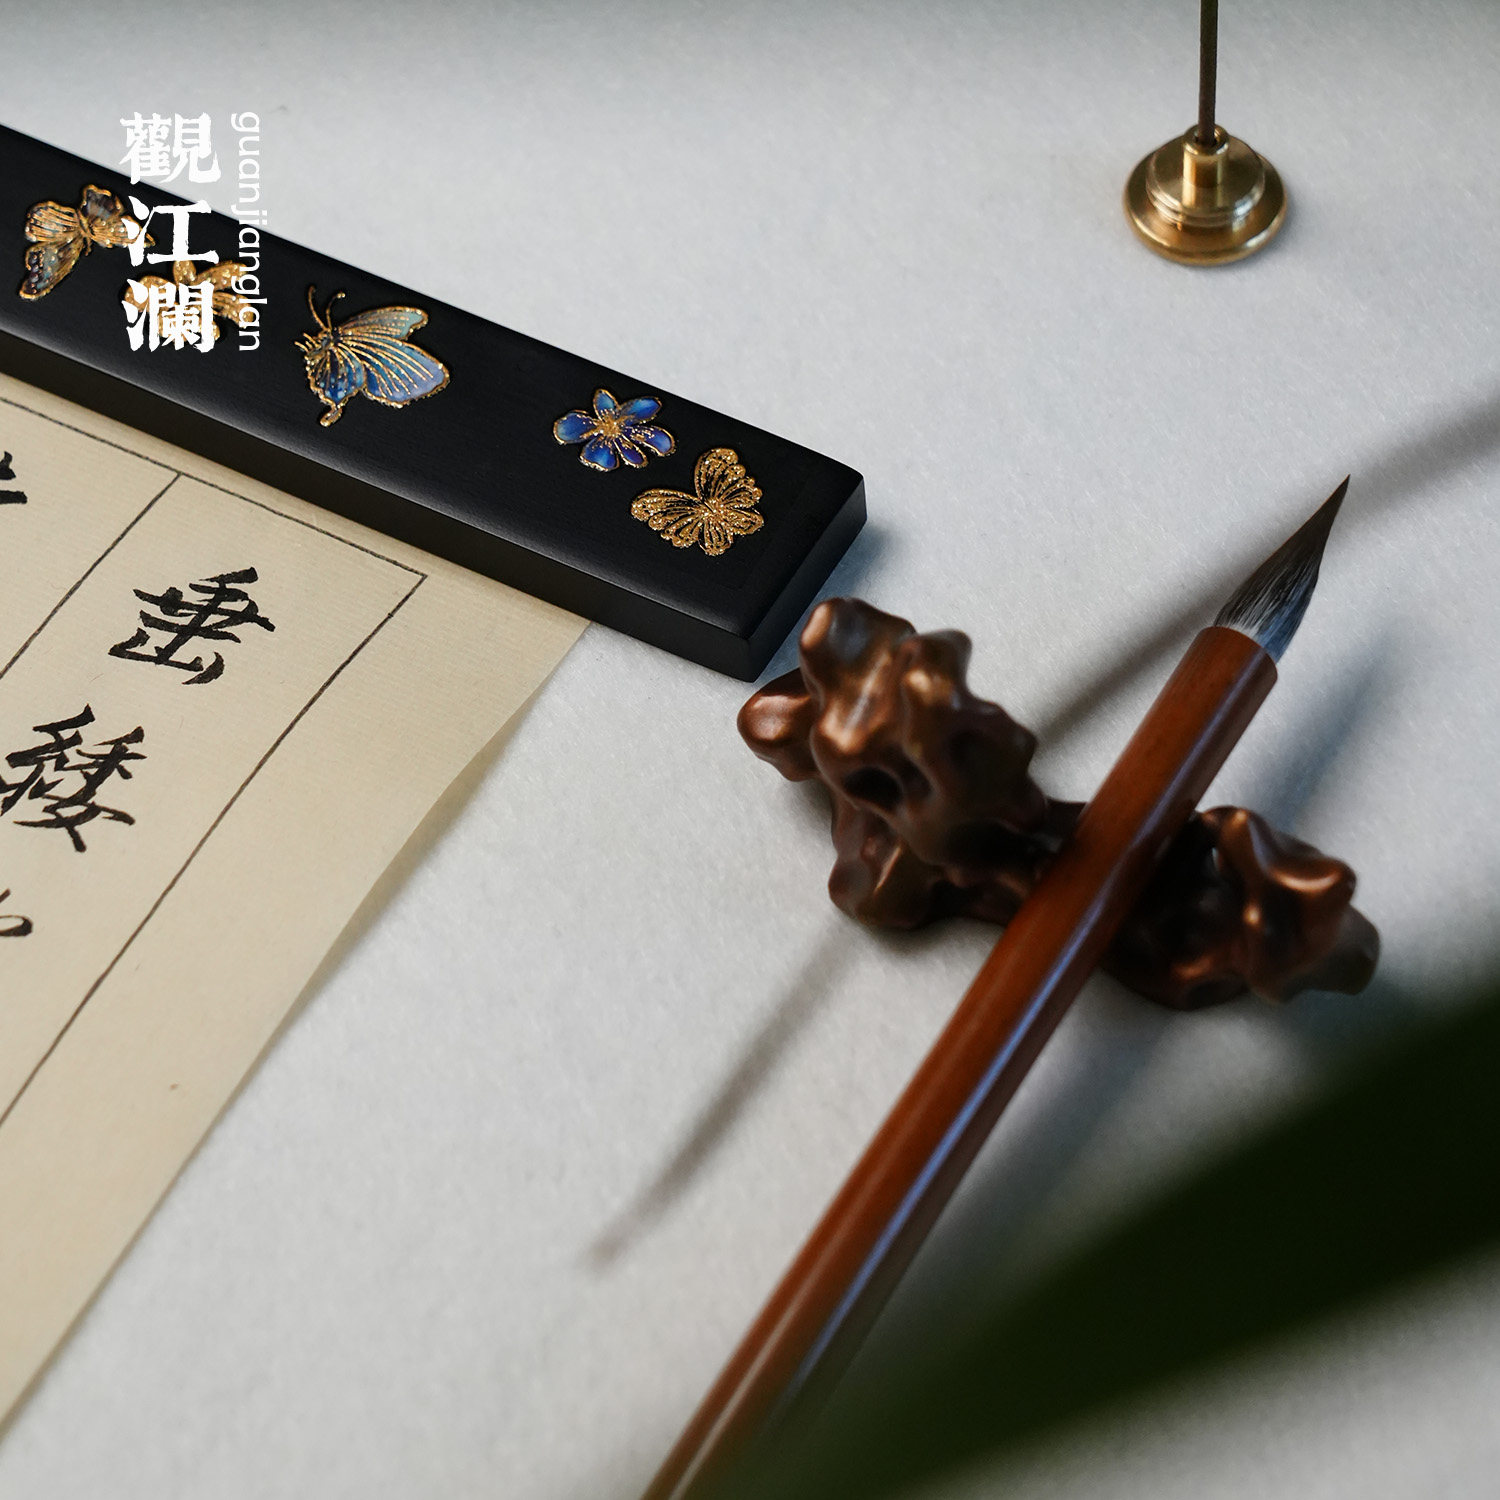 觀江瀾
guanjianglan
垂
緌